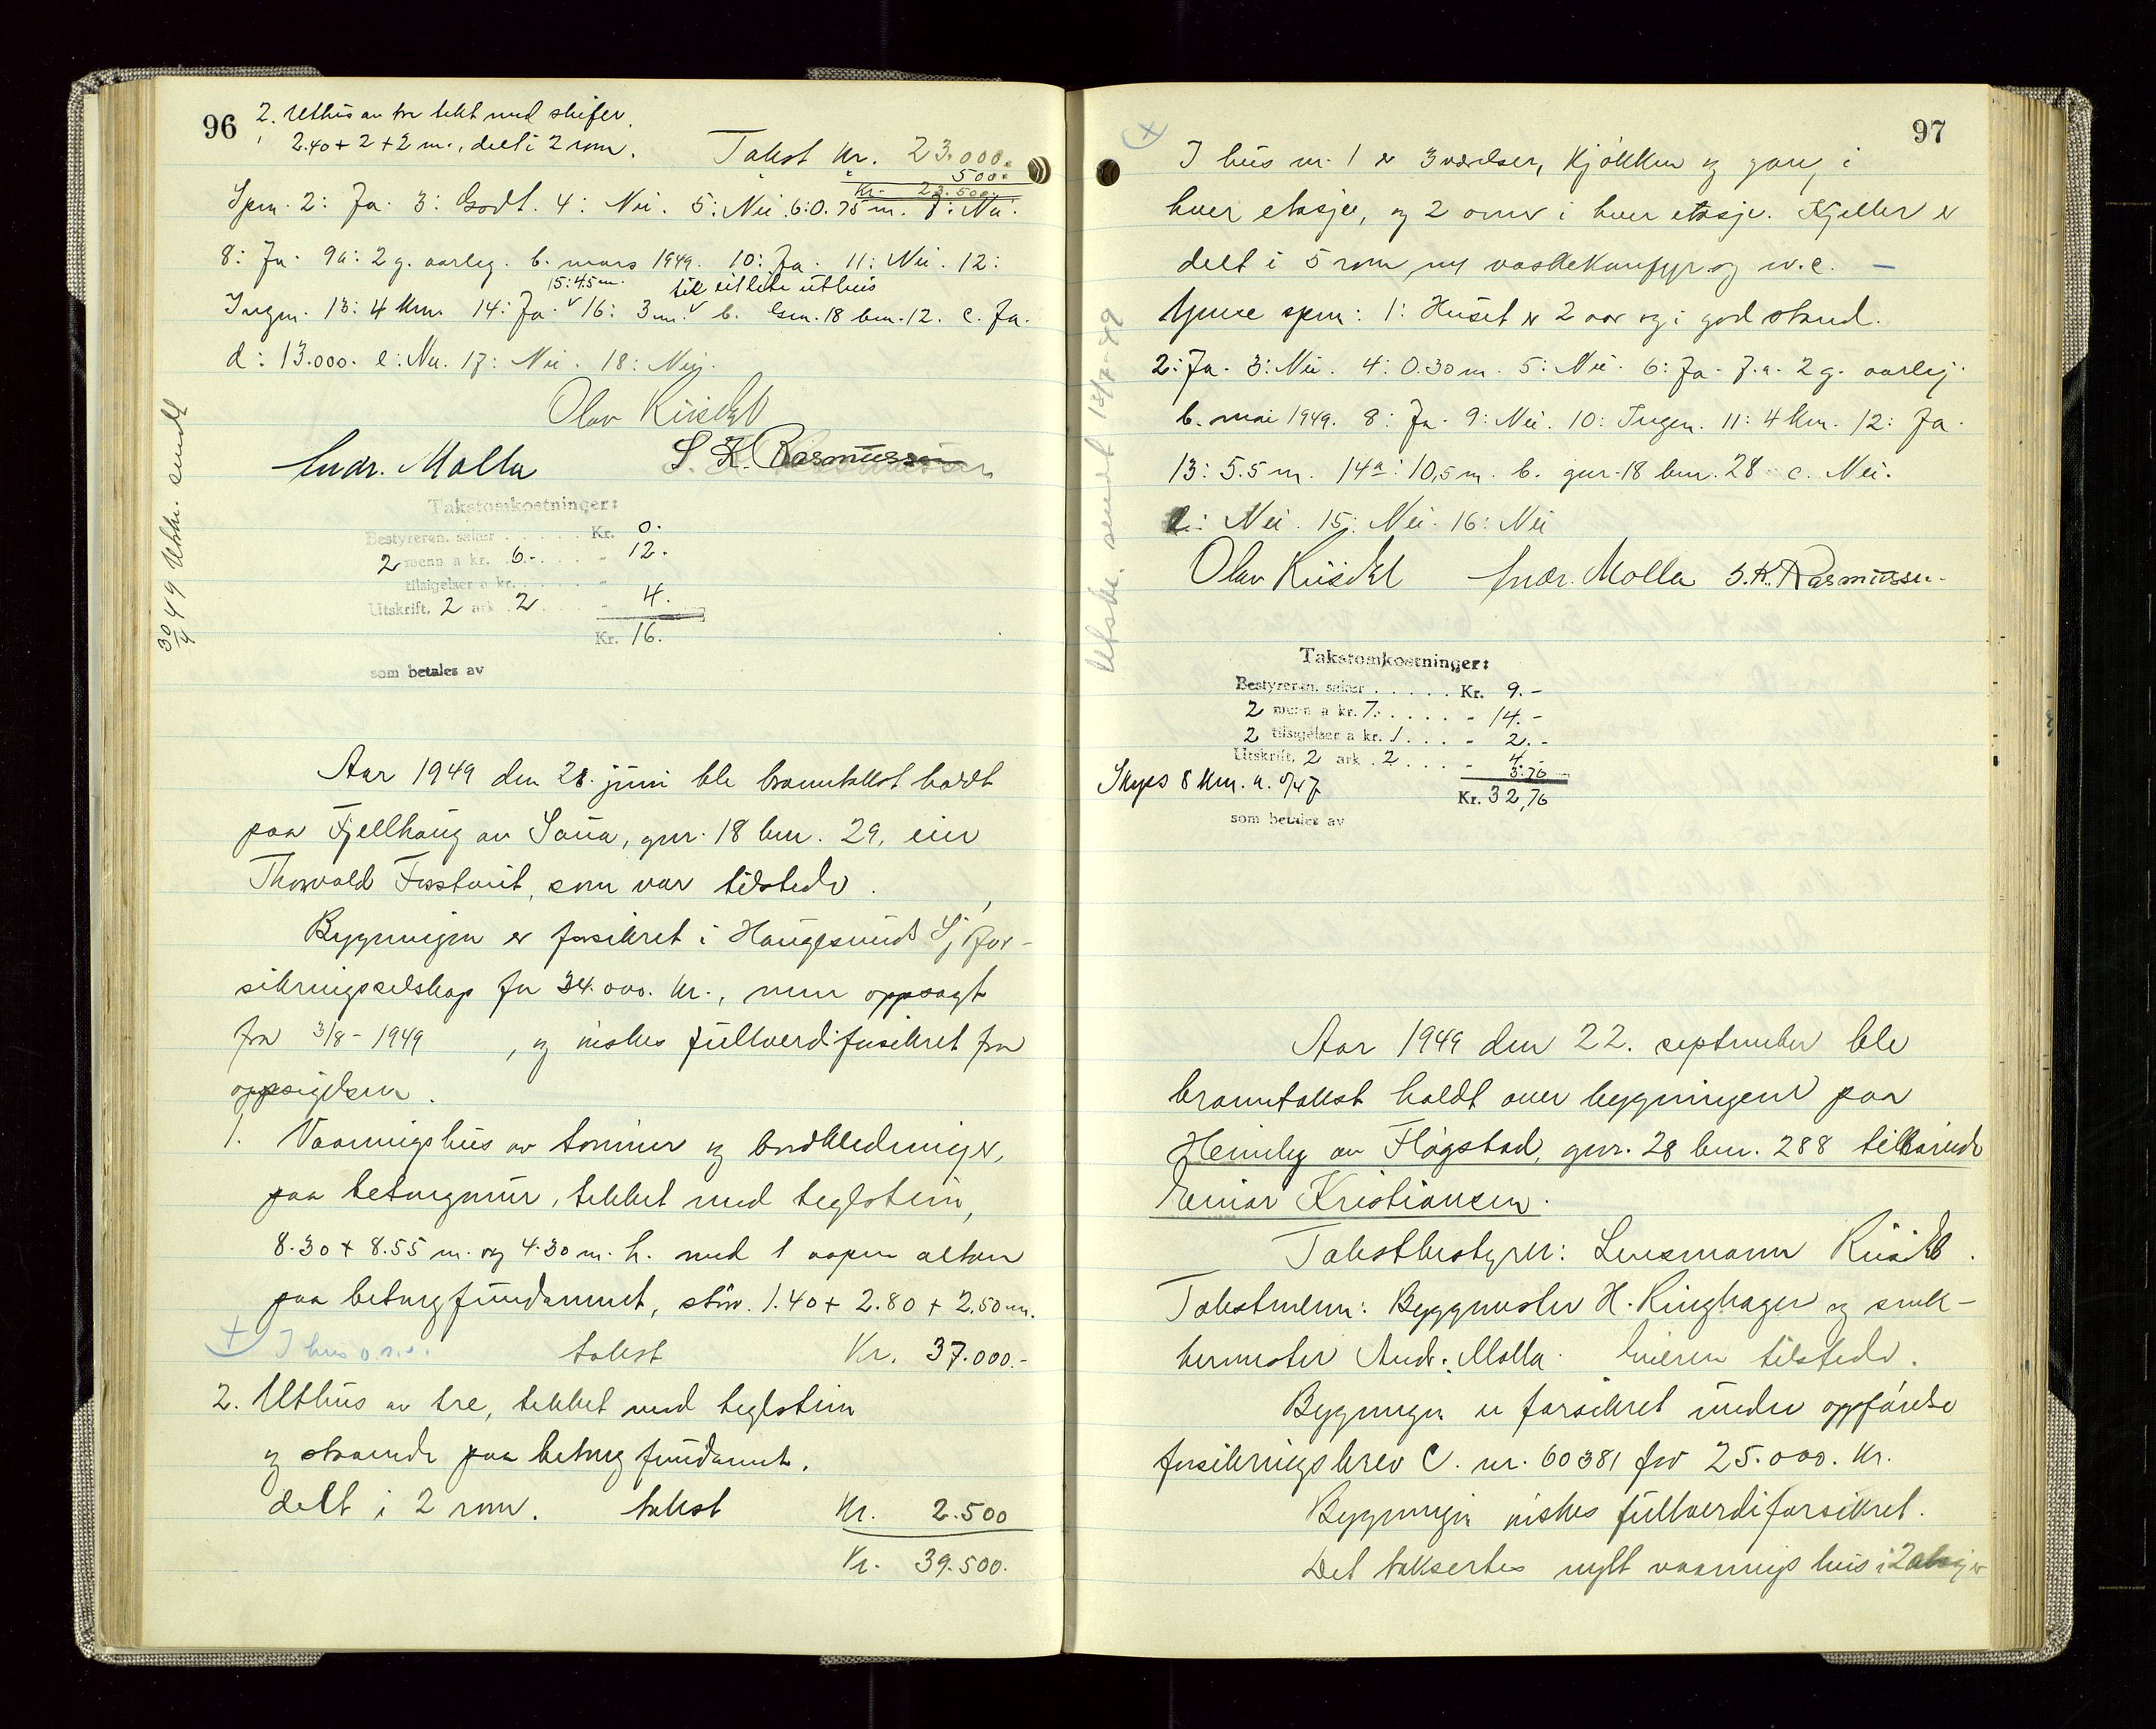 96
2. Uthus av tre tekt med skifer
2.40 + 2 + 2 m., delt i 2 rom.
Takst Kr. 23.000.-
500.-
Kr. 23.500.-
Spm. 2: Ja. 3: Godt. 4: Nei. 5: Nei. 6: 0.75 m. 7: Nei.
8: Ja. 9a: 2 g. aarleg. b. mars 1949. 10: Ja. 11: Nei. 12:
15: 4.5 m. til eit lite uthus
Ingen. 13: 4 km. 14: Ja. 16: 3 m. b. Gnr. 18 bnr. 12. c. Ja.
d: 13.000. e: Nei. 17: Nei. 18: Nei.
Olav
Andr. Molla S. K. Rasmussen
30/4 49 Utskr. sendt
Takstomkostninger:
Bestyreren, salær . . . . . . Kr. 0.
2 menn a kr. 6.- . . . . - 12.
tilsigelser a kr. . . . . -
Utskrift, 2 ark 2 . . . . - 4.
Kr. 16.
som betales av
Aar 1949 den 28. juni ble branntakst holdt
paa Fjellhaug av Saua, gnr. 18 bnr. 29, eier
Thorvald, som var tilstede.
Bygningen er forsikret i Haugesunds Sjøfor-
sikringsselskap for 34.000. kr., men oppsagt
fra 3/8 - 1949, og ønskes fullverdiforsikret fra
oppsigelsen.
1. Vaaningshus av tømmer og bordkledninger,
paa betongmur, tekket med teglstein,
8.30 + 8.55 m. og 4.30 m. h. med 1 aapen altan
paa betongfundament, stør. 1.40 + 2.80 + 2.50 m.
+ I hus o.s.v. takst Kr. 37.000.-
2. Uthus av tre, tekket med teglstein
og staaende paa betong fundament.
delt i 2 rom. takst Kr. 2.500
Kr. 39.500.
97
+
I hus nr. 1 er 3 værelser, kjøkken og gang i
hver etasje, og 2 omner i hver etasje. Kjeller er
delt i 5 rom og w.c. -
spm: 1: Huset er 2 aar og i god stand.
2: Ja. 3: Nei. 4: 0.30 m. 5: Nei. 6: Ja. 7. a. 2 g. aarleg.
b. mai 1949. 8: Ja. 9: Nei. 10: Ingen. 11: 4 km. 12: Ja.
13: 5.5 m. 14a: 10,5 m. b. gnr. 18 bnr. 28 c. Nei.
Nei. 15: Nei. 16: Nei
Olav Andr. Molla S. K. Rasmussen.
Utskr. sendt
Takstomkostninger:
Bestyreren, salær . . . . . . Kr. 9.-
2 menn a kr. 7. . . . . - 14.-
2 tilsigelser a kr. 1. . . . - 2.-
Utskrift, 2 ark 2 . . . . - 4.-
3.76
Skyss 8 km. a. 0/47 Kr. 32,76
som betales av
Aar 1949 den 22. september ble
branntakst holdt over bygningene paa
Heimly av Fløgstad, gnr. 28 bnr. 288 tilhørende
Einar Kristiansen.
Takstbestyrer: Lensmann
Takstmenn: Byggmester H. Ringhagen og snek-
kermester Andr. Molla. Eieren tilstede.
Bygningen er forsikret under oppførelse
forsikringsbrev C. nr. 60381 for 25.000. kr.
Bygningen ønskes fullverdiforsikret.
Det takseres nytt vaaningshus i 2 etasjer